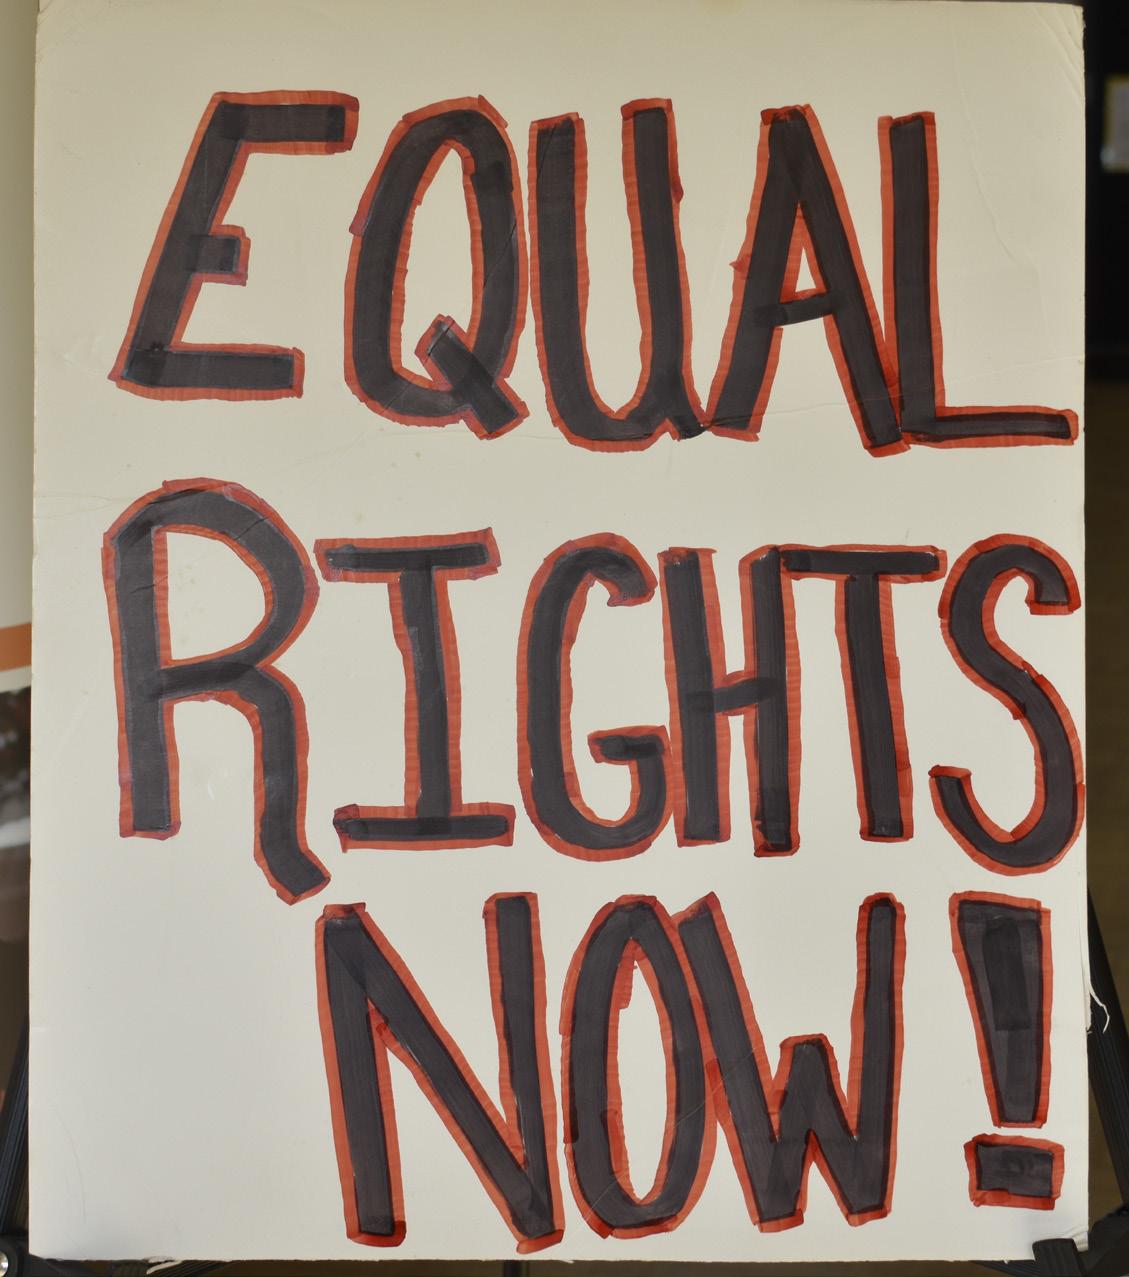 EQUAL
RIGHTS
NOW!